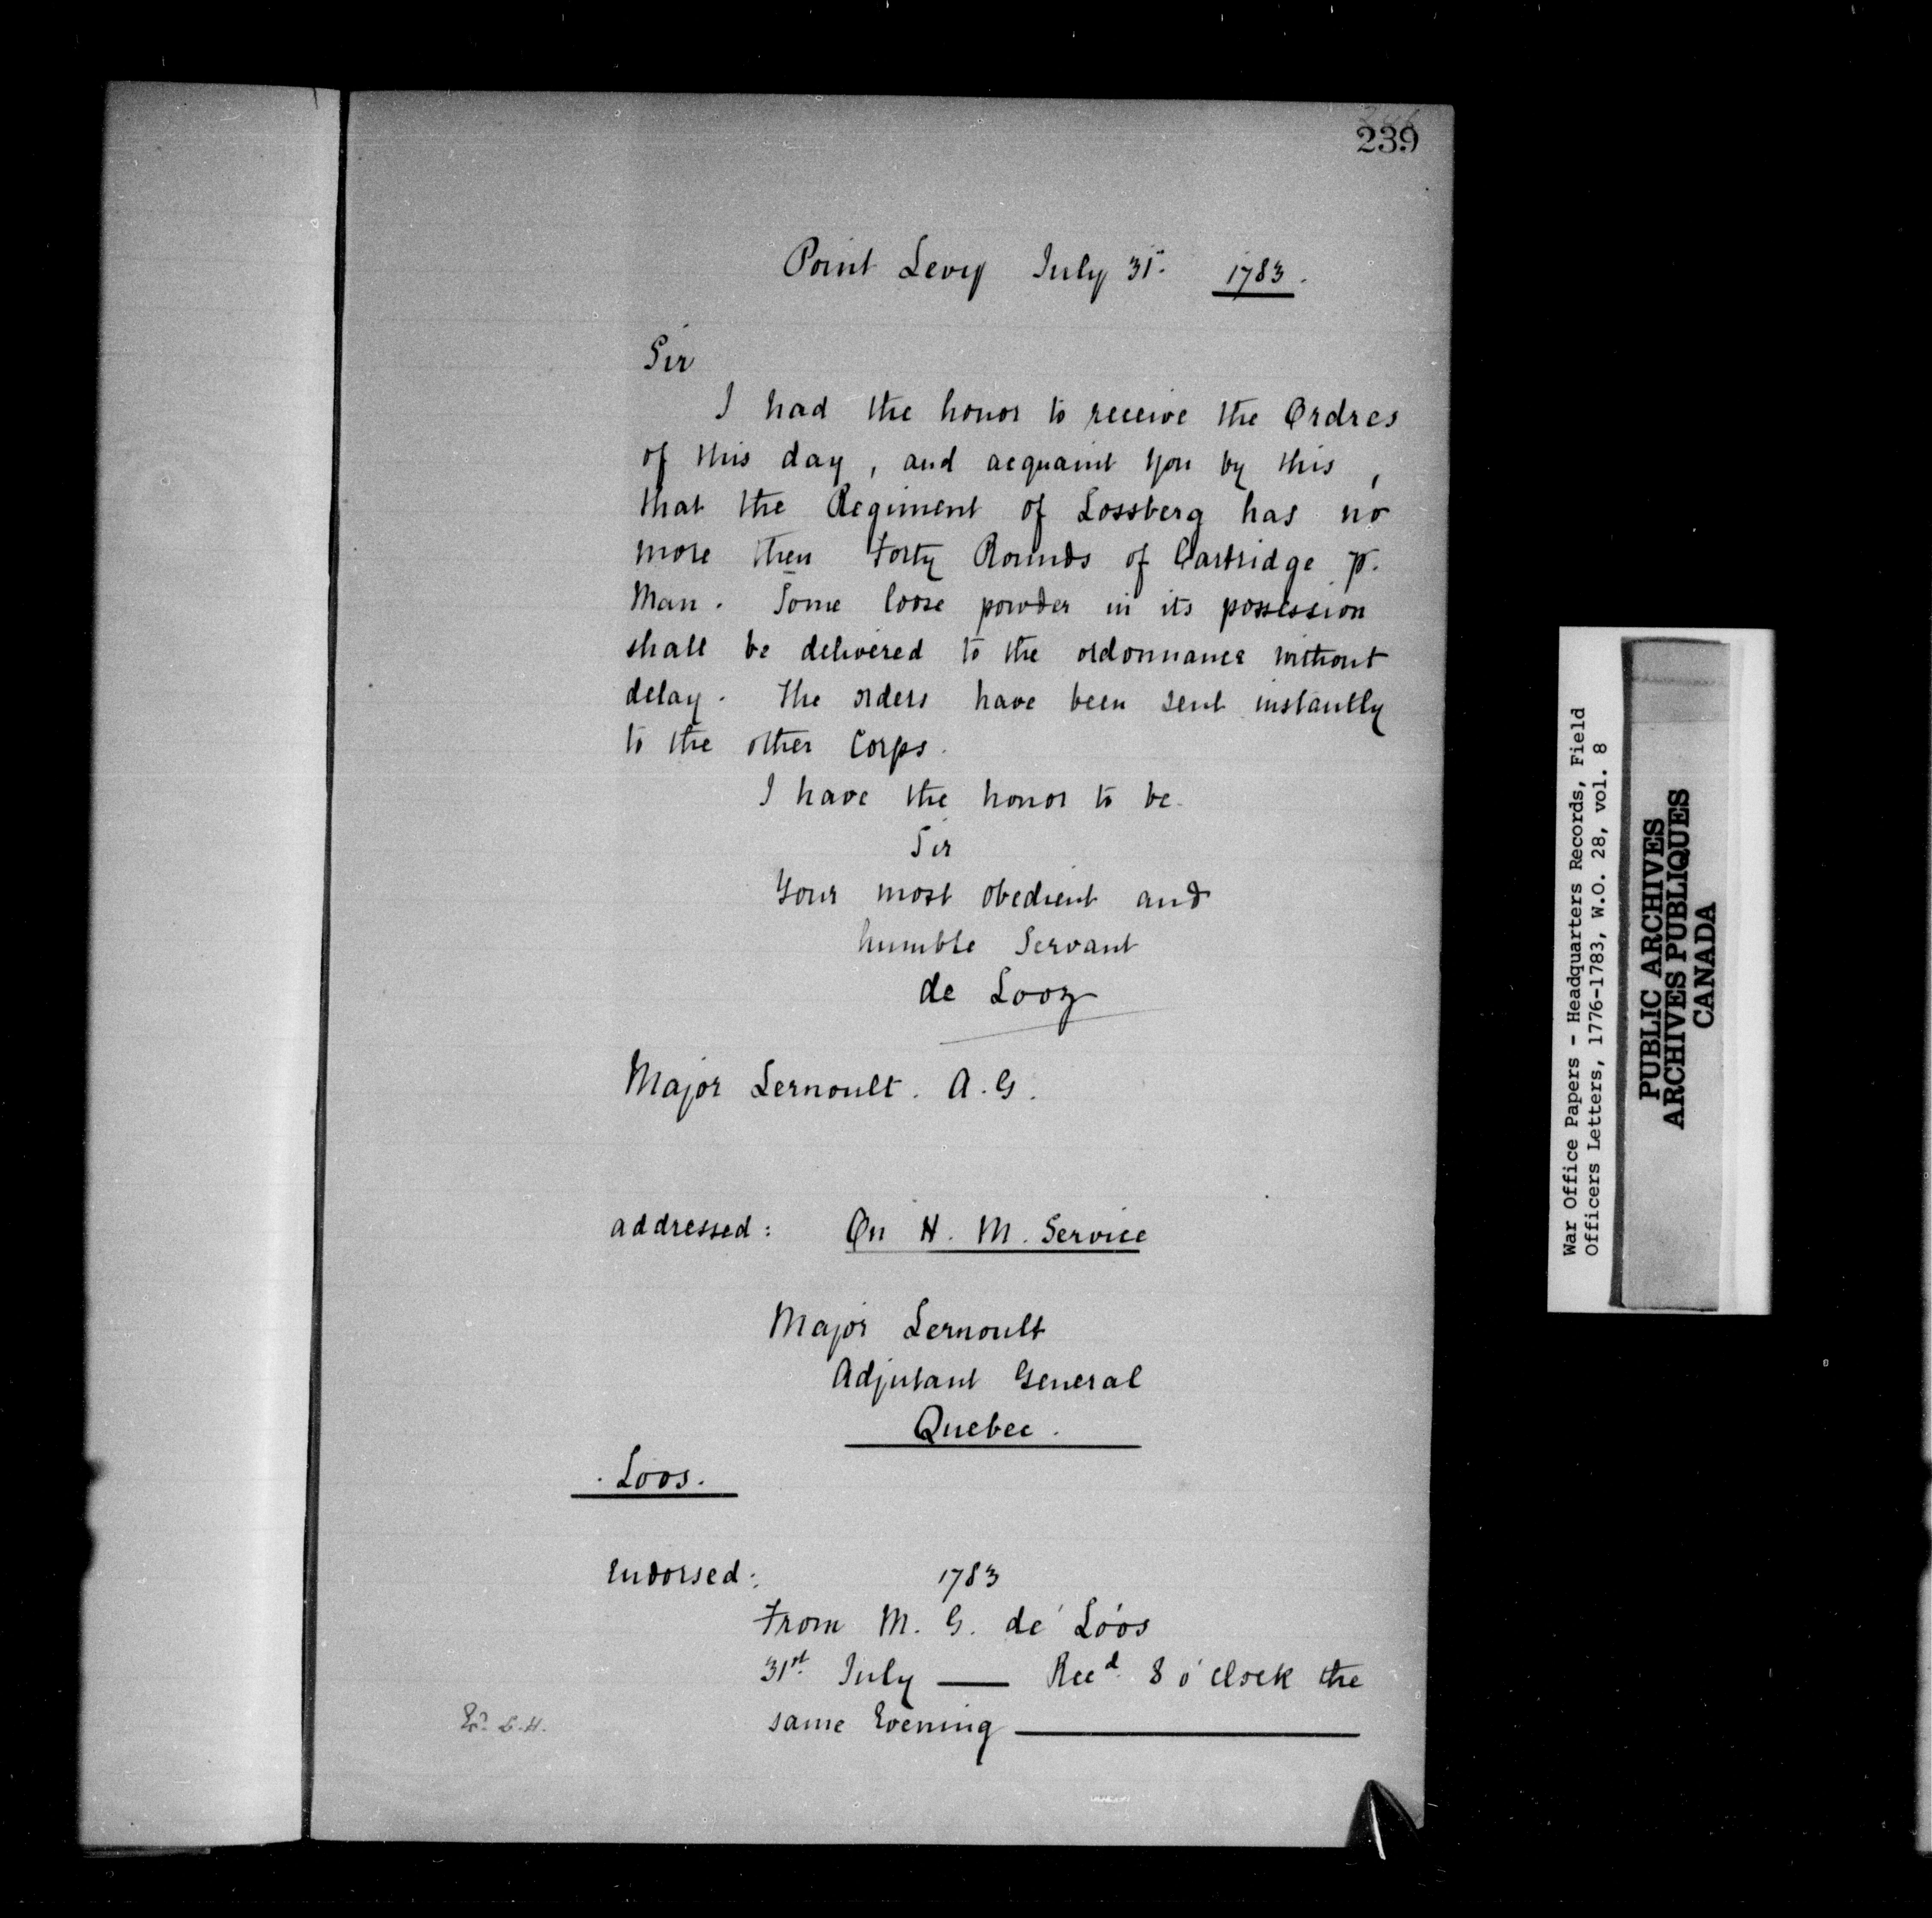 239
Point Levy July 31st. 1783.
Sir
I had the honor to receive the Ordres
of this day, and acquaint you by this,
that the Regiment of Lossberg has no
more then Forty Rounds of Cartridge p.
Man. Some loose powder in its possession
shall be delivered to the ordonnance without
delay. The orders have been sent instantly
to the other Corps.
I have the honor to be
Sir
Your most obedient and
humble Servant
de Looz
Major Lernoult. A.G.
addressed: On H. M. Service
Major Lernoult
Adjutant General
Quebec.
. Loos.
Endorsed: 1783
From M. G. dé Lóos
31st. July — Recd. 8 o'clock the
same Evening —
War Office Papers - Headquarters Records, Field
Officers Letters, 1776-1783, W.O. 28, vol. 8
PUBLIC ARCHIVES
ARCHIVES PUBLIQUES
CANADA